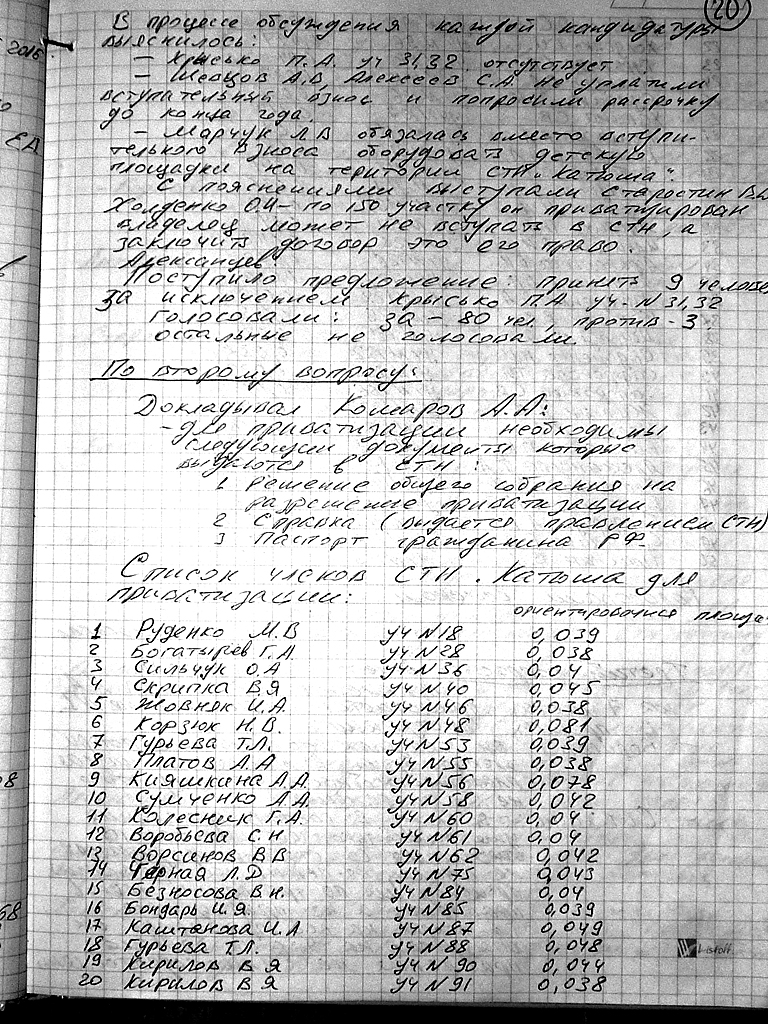 20
В процессе обсуждения каждой кандидатуры
выяснилось:
2015
– Крысько П.А. уч 31,32 отсутствует
– Шевцов А.В, Алексеев С.А. не уплатили
вступательный взнос и попросили рассрочку
до конца года.
– Марчук Л.В обязалась вместо вступи-
телького взноса оборудовать детскую
площадки на територии СТН „Катюша“.
С пояснениями выступали Старостин
Холденко О.И – по 150 участку он приватизирован
владелец может не вступать в СТН, а
заключить договор это его право.
Алексанцев.
Поступило предложение: принять 9 челове
за исключением Крысько ПА уч-N 31,32
Голосовали: За – 80 чел., против - 3
остальные не голосовали.
По второму вопросу:
Докладывал Комаров А.А:
- для приватизации необходимы
следующии документы которые
выдаются в СТН:
1 Решение общего собрания на
разрешение приватизации
2 Справка (выдается правлением СТН)
3 Паспорт гражданина РФ
Список членов СТН. Катюша для
приватизации:
ориентировочная площа-
1 Руденко М.В уч N18 0,039
2 Богатырев Г.А. уч N28 0,038
3 Сильчук О.А уч N36 0,04
4 Скрипка В.Я уч N40 0,045
5 Жовняк И.А. уч N46 0,038
6 Корзюк Н.В. уч N48 0,081
7 Гурьева Т.Л. уч N53 0,039
8 Платов А.А уч N55 0,038
9 Кияшкина А.А. уч N56 0,078
10 Сумченко А.А. уч N58 0,042
11 Колесник Г.А. уч N60 0,04
12 Воробьева С.Н уч N61 0,04
13 Ворсинов В В уч N62 0,042
14 Черная Л.Д уч N75 0,043
15 Безносова В.н. уч N84 0,04
16 Бондарь И.Я. уч N85 0,039
17 Каштанова И.А уч N87 0,049
18 Гурьева Т.Л. уч N88 0,048
19 Кирилов В Я уч N 90 0,044
20 Кирилов В Я уч N91 0,038
Listoff